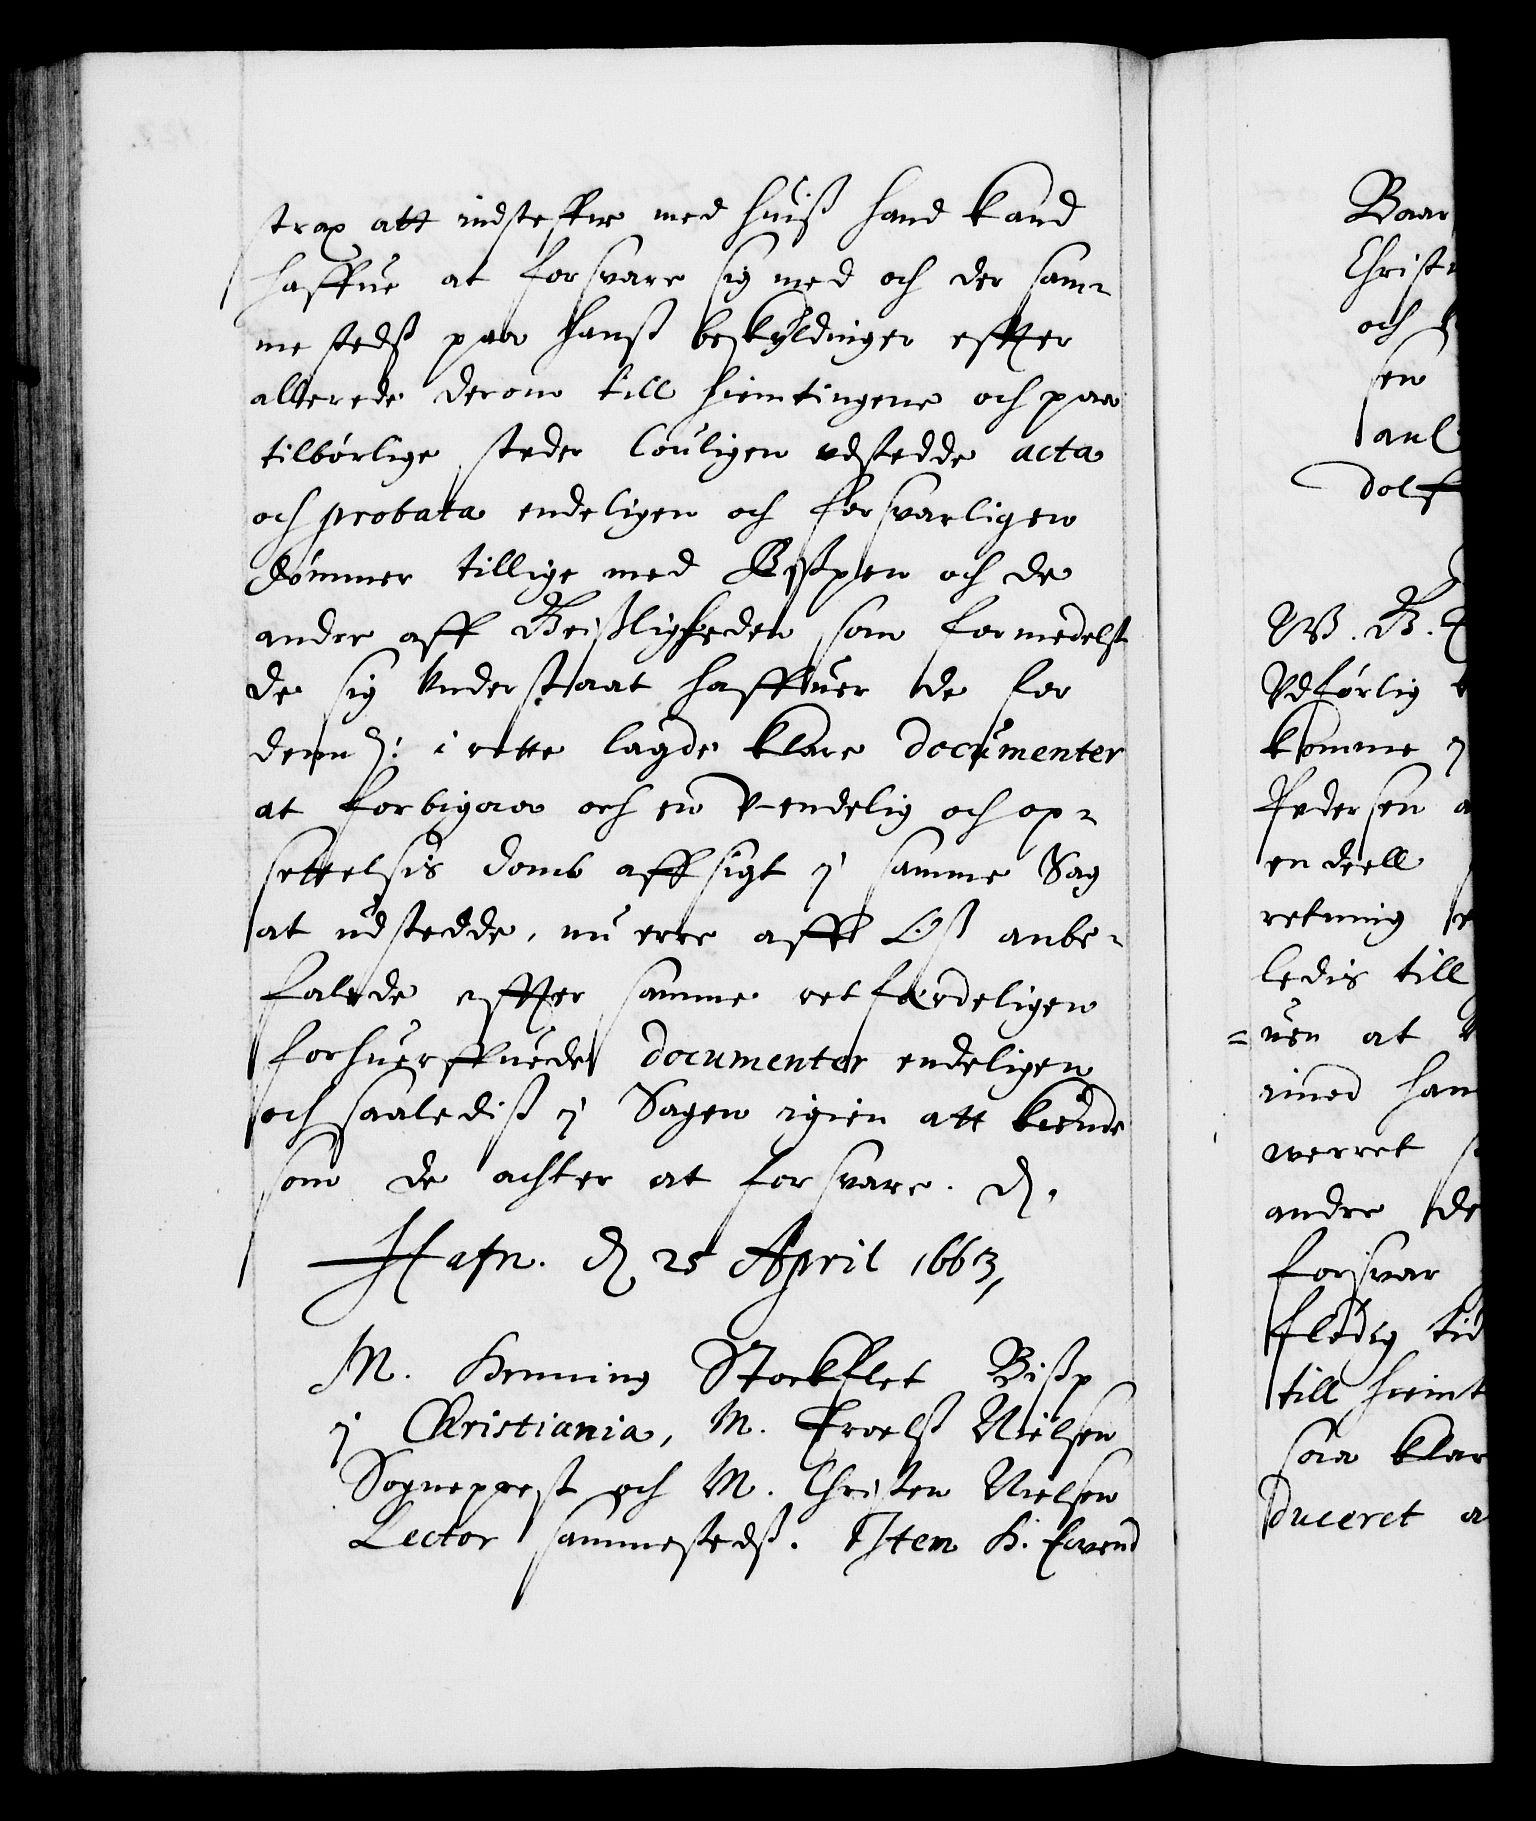 strax att indsteffne med huiß hand kand
haffue at forsvare sig med och der sam-
me steds paa hanß beskyldinger effter
allerede derom till hiemtingene och paa
tilbørlige steder louligen udstedde acta
och probata endeligen och forsvarligen
dømmer tillige med Bispen och de
andre aff Geistligheden som formedelst
de sig understaaet haffuer de for
denn i rette lagde klare documenter
at forbigaa och en U-endelig och op-
settelsis domb affsigt j samme Sag
at udstedde, nu erre aff Oß anbe-
falede effter samme retferdeligen
forhuerffuede documenter endeligen
och saaledis j Sagen igien att kiende
som de achter at forsvare. D.
Hafn. D 25 April 1663,
M. Henning Stockflet Bisp
j Christiania, M. Troels Nielsen
Sogneprest och M. Christen Nielsen
Lector sammesteds. Item H. Envend
Baar
Christ
och
sen
anl
dolf
W. B.
Udførlig
komme
Pedersen
en deell
retning
ledis till
=uen at
rined han
werret
andre de
forsvar
flödig tid
till hiemt
saa klar
duceret a